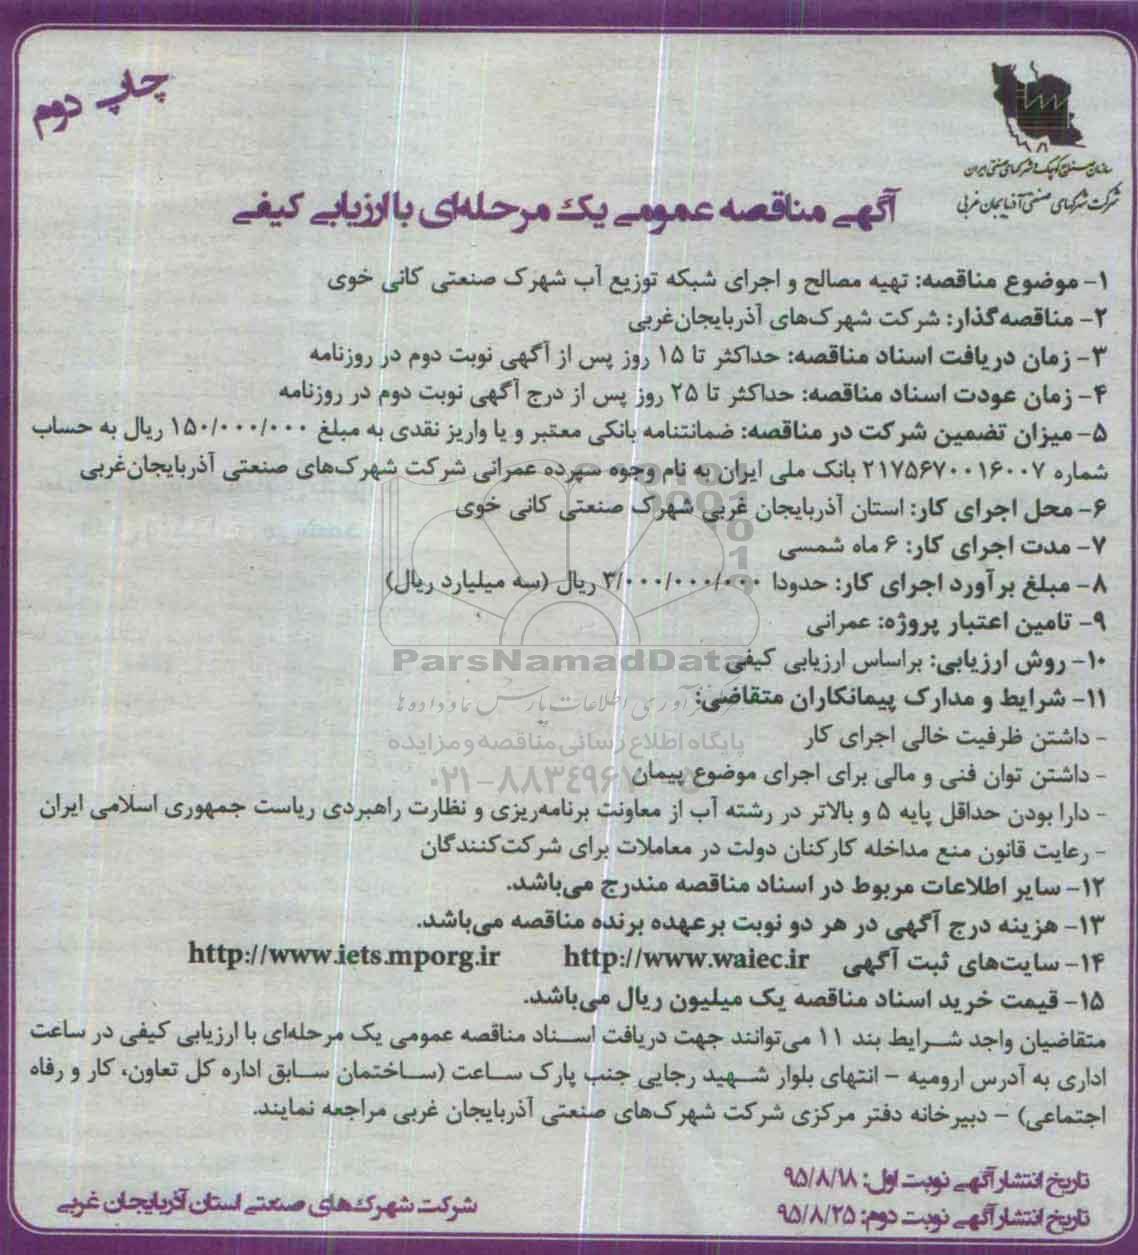 چاپ دوم
سازمان صنایع کوچک و شهرکهای صنعتی ایران
شرکت شهرکهای صنعتی آذربایجان غربی
آگهی مناقصه عمومی یک مرحله‌ای با ارزیابی کیفی
۱- موضوع مناقصه: تهیه مصالح و اجرای شبکه توزیع آب شهرک صنعتی کانی خوی
۲- مناقصه‌گذار: شرکت شهرک‌های آذربایجان‌غربی
۳- زمان دریافت اسناد مناقصه: حداکثر تا ۱۵ روز پس از آگهی نوبت دوم در روزنامه
۴- زمان عودت اسناد مناقصه: حداکثر تا ۲۵ روز پس از درج آگهی نوبت دوم در روزنامه
۵- میزان تضمین شرکت در مناقصه: ضمانتنامه بانکی معتبر و یا واریز نقدی به مبلغ ۱۵۰/۰۰۰/۰۰۰ ریال به حساب
شماره ۲۱۷۵۶۷۰۰۱۶۰۰۷ بانک ملی ایران به نام وجوه سپرده عمرانی شرکت شهرک‌های صنعتی آذربایجان‌غربی
۶- محل اجرای کار: استان آذربایجان غربی شهرک صنعتی کانی خوی
۷- مدت اجرای کار: ۶ ماه شمسی
۸- مبلغ برآورد اجرای کار: حدودا ۳/۰۰۰/۰۰۰/۰۰۰ ریال (سه میلیارد ریال)
۹- تامین اعتبار پروژه: عمرانی
۱۰- روش ارزیابی: براساس ارزیابی کیفی
ParsNamadData
۱۱- شرایط و مدارک پیمانکاران متقاضی:
فرآوری اطلاعات پارس نماد داده‌ها
- داشتن ظرفیت خالی اجرای کار
پایگاه اطلاع رسانی مناقصه و مزایده
- داشتن توان فنی و مالی برای اجرای موضوع پیمان
- دارا بودن حداقل پایه ۵ و بالاتر در رشته آب از معاونت برنامه‌ریزی و نظارت راهبردی ریاست جمهوری اسلامی ایران
- رعایت قانون منع مداخله کارکنان دولت در معاملات برای شرکت‌کنندگان
۱۲- سایر اطلاعات مربوط در اسناد مناقصه مندرج می‌باشد.
۱۳- هزینه درج آگهی در هر دو نوبت برعهده برنده مناقصه می‌باشد.
۱۴- سایت‌های ثبت آگهی http://www.waiec.ir http://www.iets.mporg.ir
۱۵- قیمت خرید اسناد مناقصه یک میلیون ریال می‌باشد.
متقاضیان واجد شرایط بند ۱۱ می‌توانند جهت دریافت اسناد مناقصه عمومی یک مرحله‌ای با ارزیابی کیفی در ساعت
اداری به آدرس ارومیه - انتهای بلوار شهید رجایی جنب پارک ساعت (ساختمان سابق اداره کل تعاون، کار و رفاه
اجتماعی) - دبیرخانه دفتر مرکزی شرکت شهرک‌های صنعتی آذربایجان غربی مراجعه نمایند.
تاریخ انتشار آگهی نوبت اول: ۹۵/۸/۱۸
تاریخ انتشار آگهی نوبت دوم: ۹۵/۸/۲۵
شرکت شهرک‌های صنعتی استان آذربایجان غربی